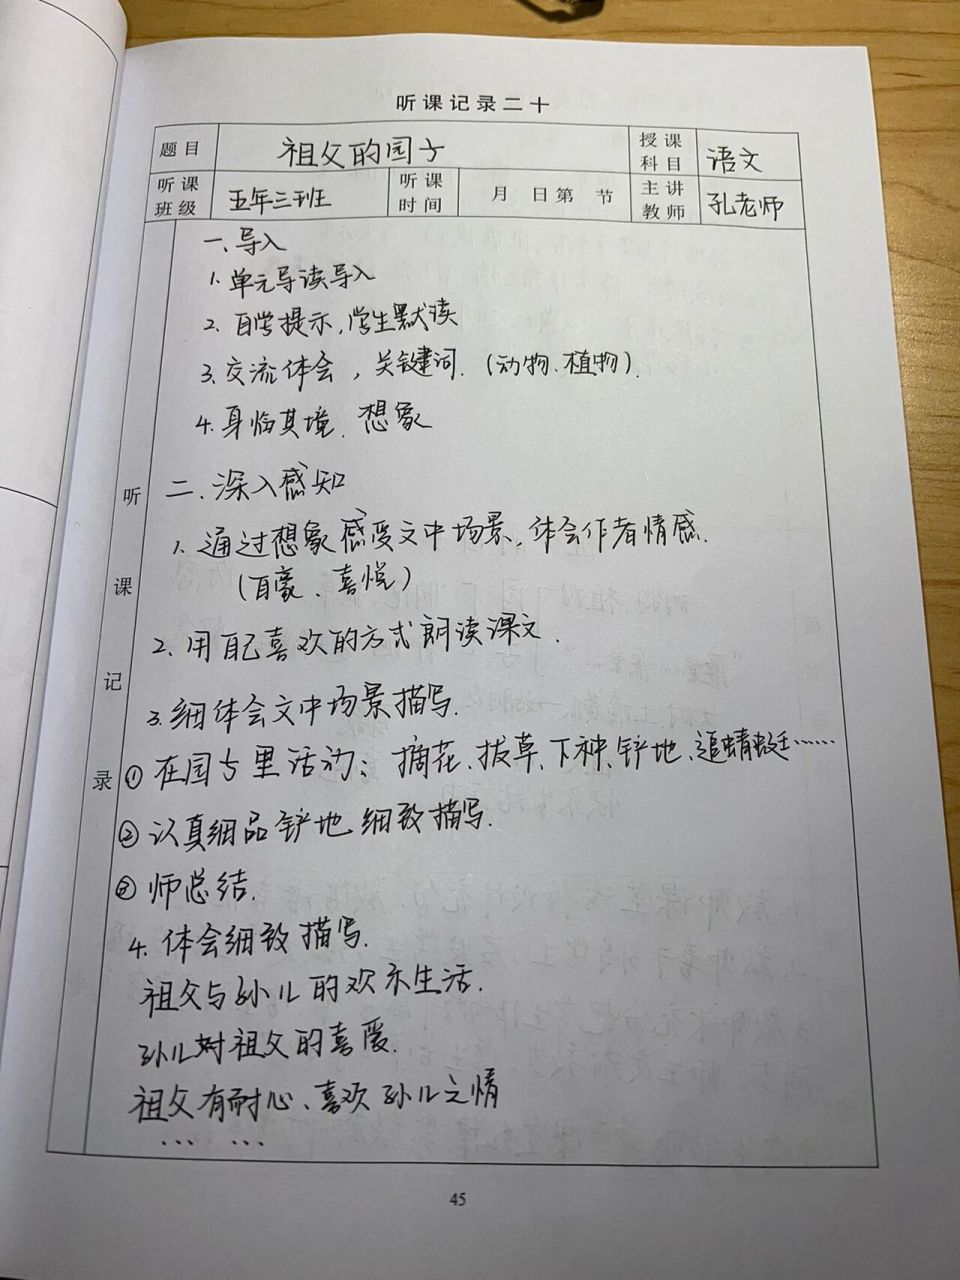 听课记录二十
题目 祖父的园子 授课科目 语文
听课班级 五年三班 听课时间 月 日第 节 主讲教师 孔老师
听课记录
一、导入
1. 单元导读导入
2. 自学提示,学生默读
3. 交流体会,关键词.(动物、植物).
4. 身临其境. 想象
二. 深入感知
1. 通过想象感受文中场景,体会作者情感.
(自豪、喜悦)
2. 用自己喜欢的方式朗读课文.
3. 细体会文中场景描写.
① 在园子里活动:摘花、拔草、下种、铲地、追蜻蜓……
② 认真细品铲地 细致描写.
③ 师总结.
4. 体会细致描写.
祖父与孙儿的欢乐生活.
孙儿对祖父的喜爱.
祖父有耐心、喜欢孙儿之情
… …
45